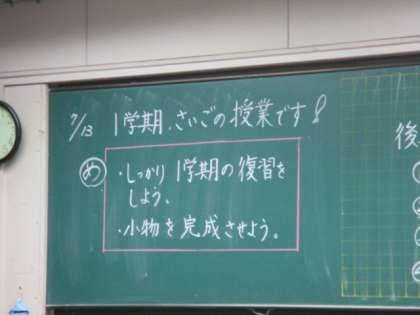 7/13 1学期、さいごの授業です!
め ・しっかり1学期の復習を
しよう、
・小物を完成させよう。
後
①